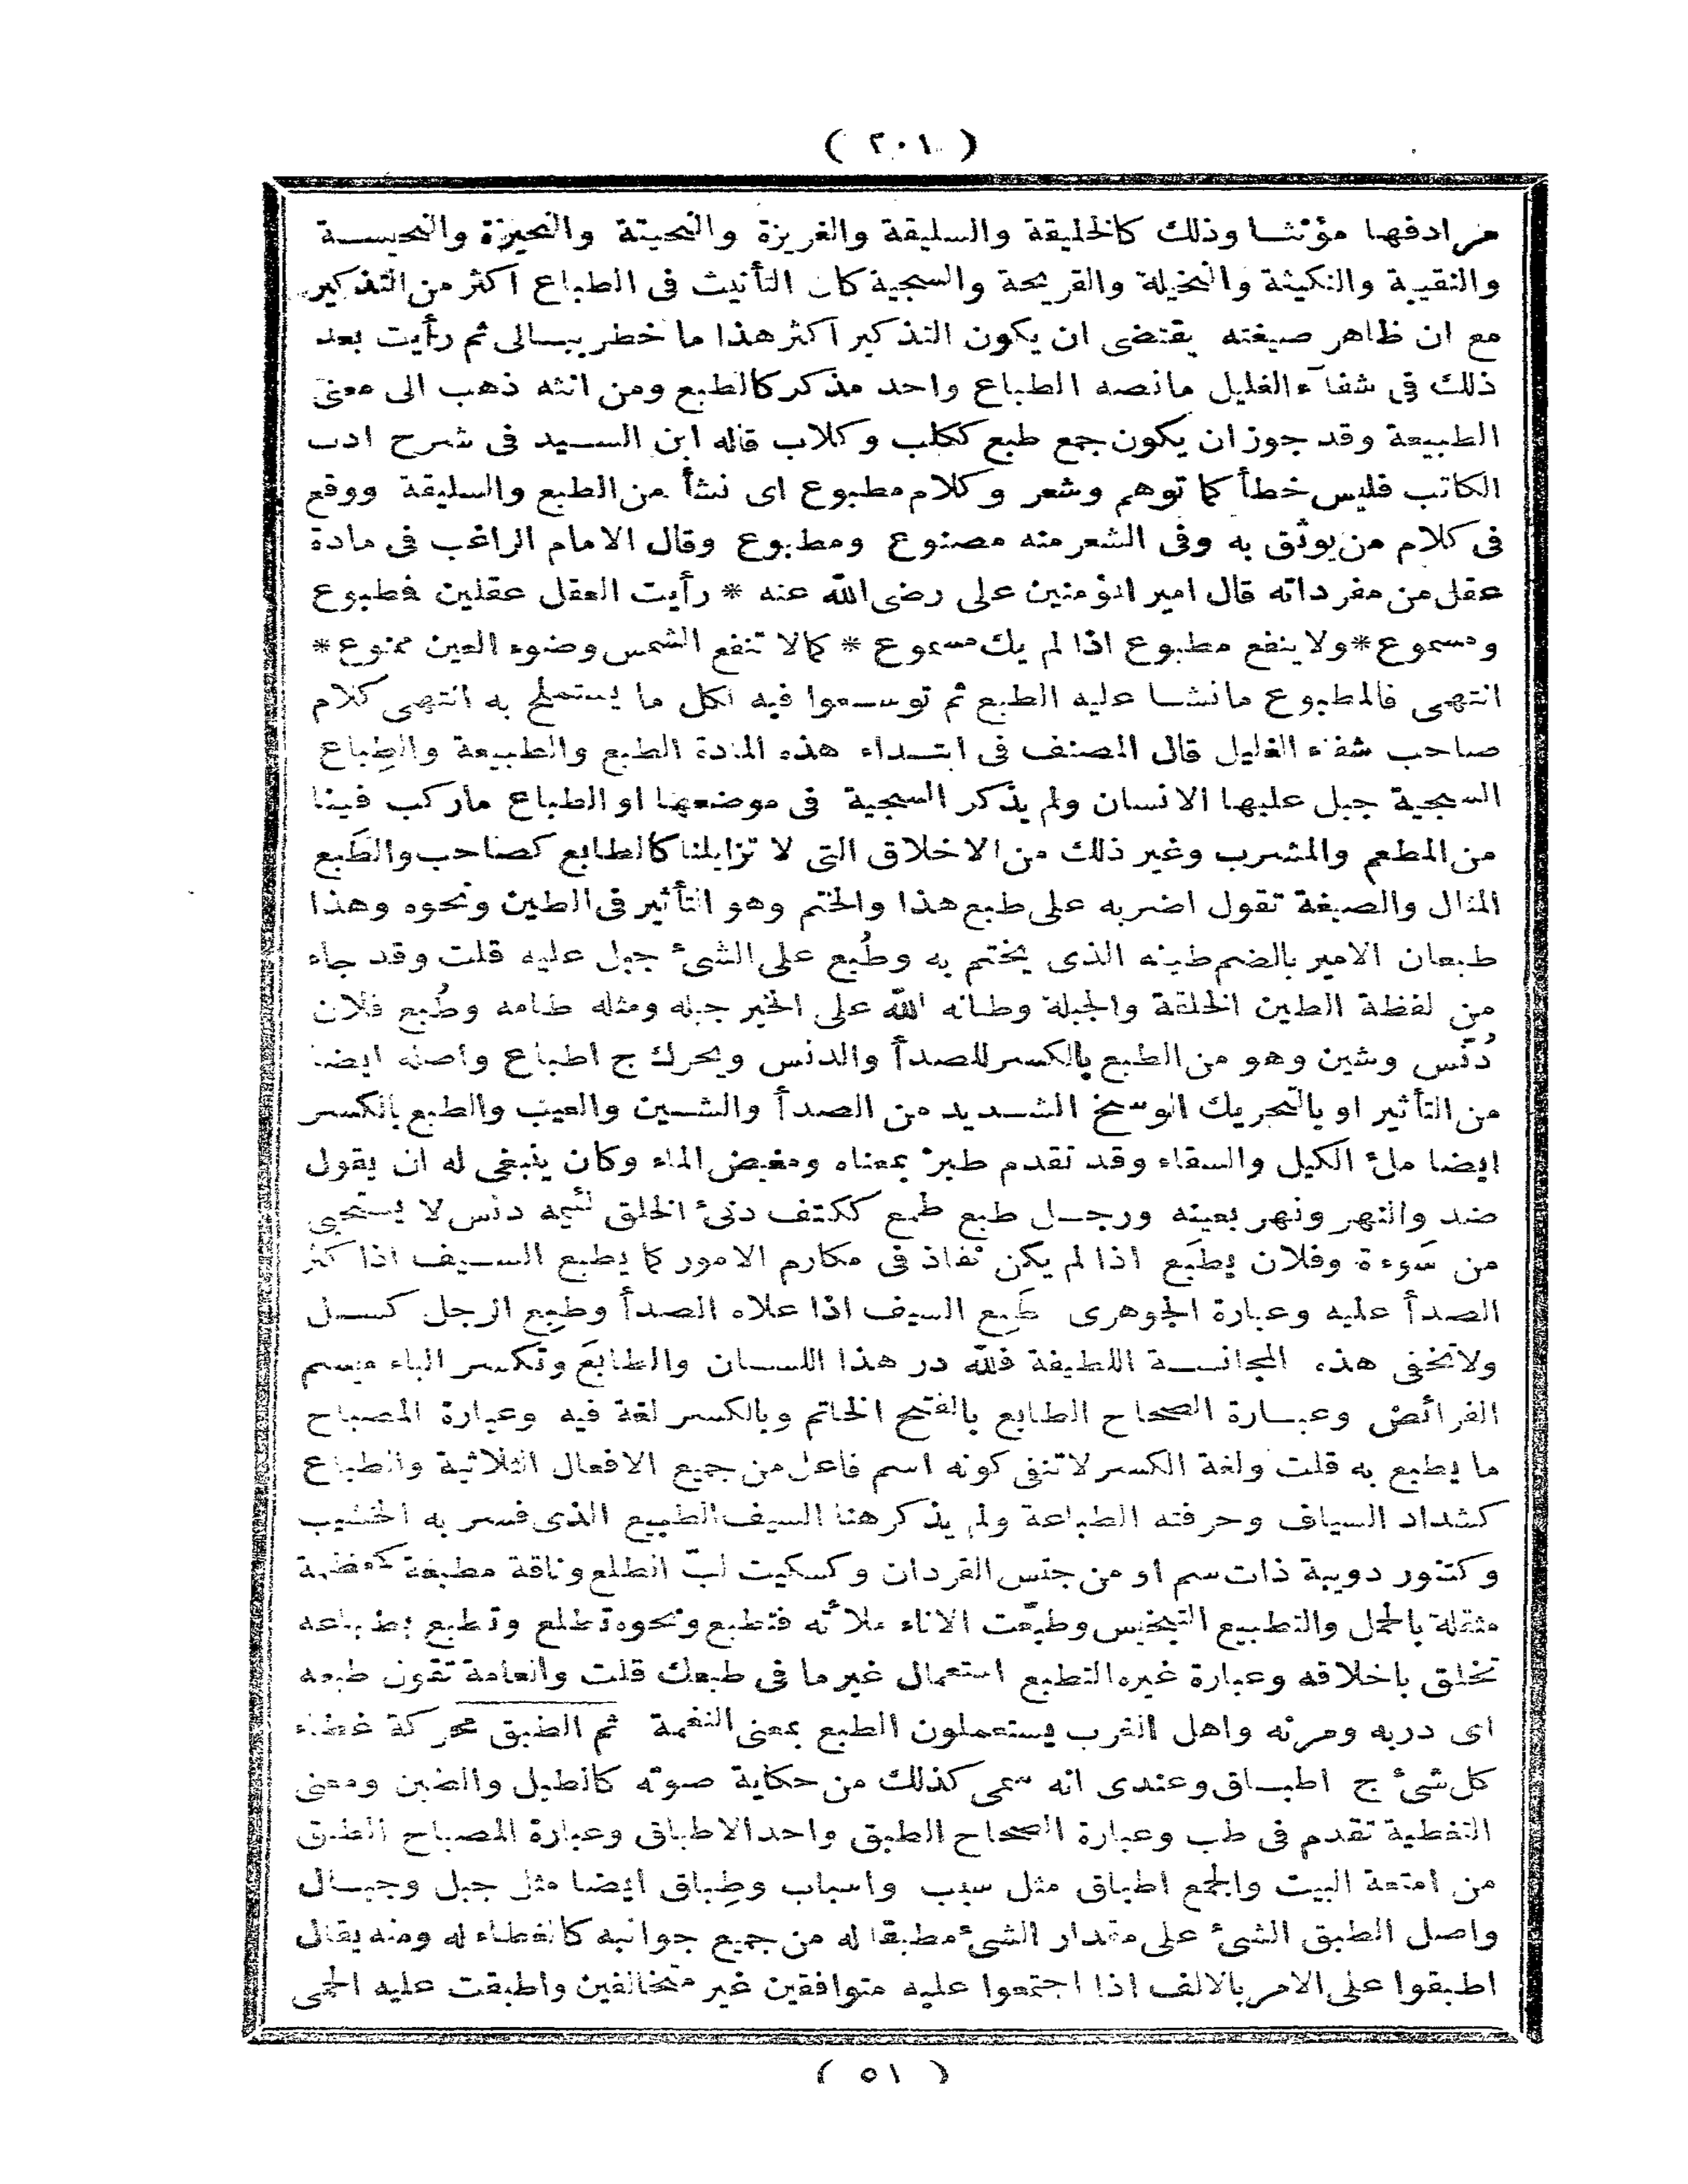 ( ٢٠١ )
مرادفها مؤنثا وذلك كالخليقة والسليقة والغريزة والنحيتة والنحيزة والنحيسة
والنقيبة والنكيثة والنخيلة والقريحة والسجية كان التأنيث فى الطباع اكثر من التذكير
مع ان ظاهر صيغته يقتضى ان يكون التذكير اكثر هذا ما خطر ببالى ثم رأيت بعد
ذلك فى شفآء الغليل مانصه الطباع واحد مذكر كالطبع ومن انثه ذهب الى معنى
الطبيعة وقد جوز ان يكون جمع طبع ككلب وكلاب قاله ابن السيد فى شرح ادب
الكاتب فليس خطأ كما توهم وشعر وكلام مطبوع اى نشأ من الطبع والسليقة ووقع
فى كلام من يوثق به وفى الشعر منه مصنوع ومطبوع وقال الامام الراغب فى مادة
عقل من مفرداته قال امير المؤمنين على رضى الله عنه * رأيت العقل عقلين فطبوع
ومسموع * ولا ينفع مطبوع اذا لم يك مسموع * كما لا تنفع الشمس وضوء العين ممنوع *
انتهى فالمطبوع مانشا عليه الطبع ثم توسعوا فيه لكل ما يستملح به انتهى كلام
صاحب شفاء الغليل قال المصنف فى ابتداء هذه المادة الطبع والطبيعة والطِباع
السجية جبل عليها الانسان ولم يذكر السجية فى موضعها او الطباع ماركب فينا
من المطعم والمشرب وغير ذلك من الاخلاق التى لا تزايلنا كالطابع كصاحب والطَبع
المثال والصيغة تقول اضربه على طبع هذا والختم وهو التأثير فى الطين ونحوه وهذا
طبعان الامير بالضم طينه الذى يختم به وطُبع على الشئ جبل عليه قلت وقد جاء
من لفظة الطين الخلقة والجبلة وطانه الله على الخير جبله ومثله طامه وطُبع فلان
دُنّس وشين وهو من الطبع بالكسر للصدأ والدنس ويحرك ج اطباع واصله ايضا
من التأثير او بالتحريك الوسخ الشديد من الصدأ والشين والعيب والطبع بالكسر
ايضا ملئ الكيل والسقاء وقد تقدم طبز بمعناه ومغيض الماء وكان ينبغى له ان يقول
ضد والنهر ونهر بعينه ورجل طبع طمع ككتف دنئ الخلق لئيمه دنس لا يستحيى
من سَوءة وفلان يَطبَع اذا لم يكن نفاذ فى مكارم الامور كما يطبع السيف اذا كثر
الصدأ عليه وعبارة الجوهرى طَبِع السيف اذا علاه الصدأ وطبِع الرجل كسل
ولا تخفى هذه المجانسة اللطيفة فلله در هذا اللسان والطابَع وتكسر الباء ميسم
الفرائض وعبارة الصحاح الطابع بالفتح الخاتم وبالكسر لغة فيه وعبارة المصباح
ما يطبع به قلت ولغة الكسر لا تنفى كونه اسم فاعل من جميع الافعال الثلاثية والطباع
كشداد السياف وحرفته الطباعة ولم يذكر هنا السيف الطبيع الذى فسر به الخشيب
وكتنور دويبة ذات سم او من جنس القردان وكسكيت لبّ الطلع وناقة مطبعة كمعظمة
مثقلة بالحمل والتطبيع التنجيس وطبّعت الاناء ملأته فتطبع ونحوه تطلع وتطبع بطباعه
تخلق باخلاقه وعبارة غيره التطبع استعمال غير ما فى طبعك قلت والعامة تقول طبعه
اى دربه ومرنه واهل الغرب يستعملون الطبع بمعنى النغمة ثم الطبق محركة غطاء
كل شئ ج اطباق وعندى انه سمى كذلك من حكاية صوته كالطبل والطبن ومعنى
التغطية تقدم فى طب وعبارة الصحاح الطبق واحد الاطباق وعبارة المصباح الطبق
من امتعة البيت والجمع اطباق مثل سبب واسباب وطِباق ايضا مثل جبل وجبال
واصل الطبق الشئ على مقدار الشئ مطبقا له من جميع جوانبه كالغطاء له ومنه يقال
اطبقوا على الامر بالالف اذا اجتمعوا عليه متوافقين غير متخالفين واطبقت عليه الحمى
( ٥١ )